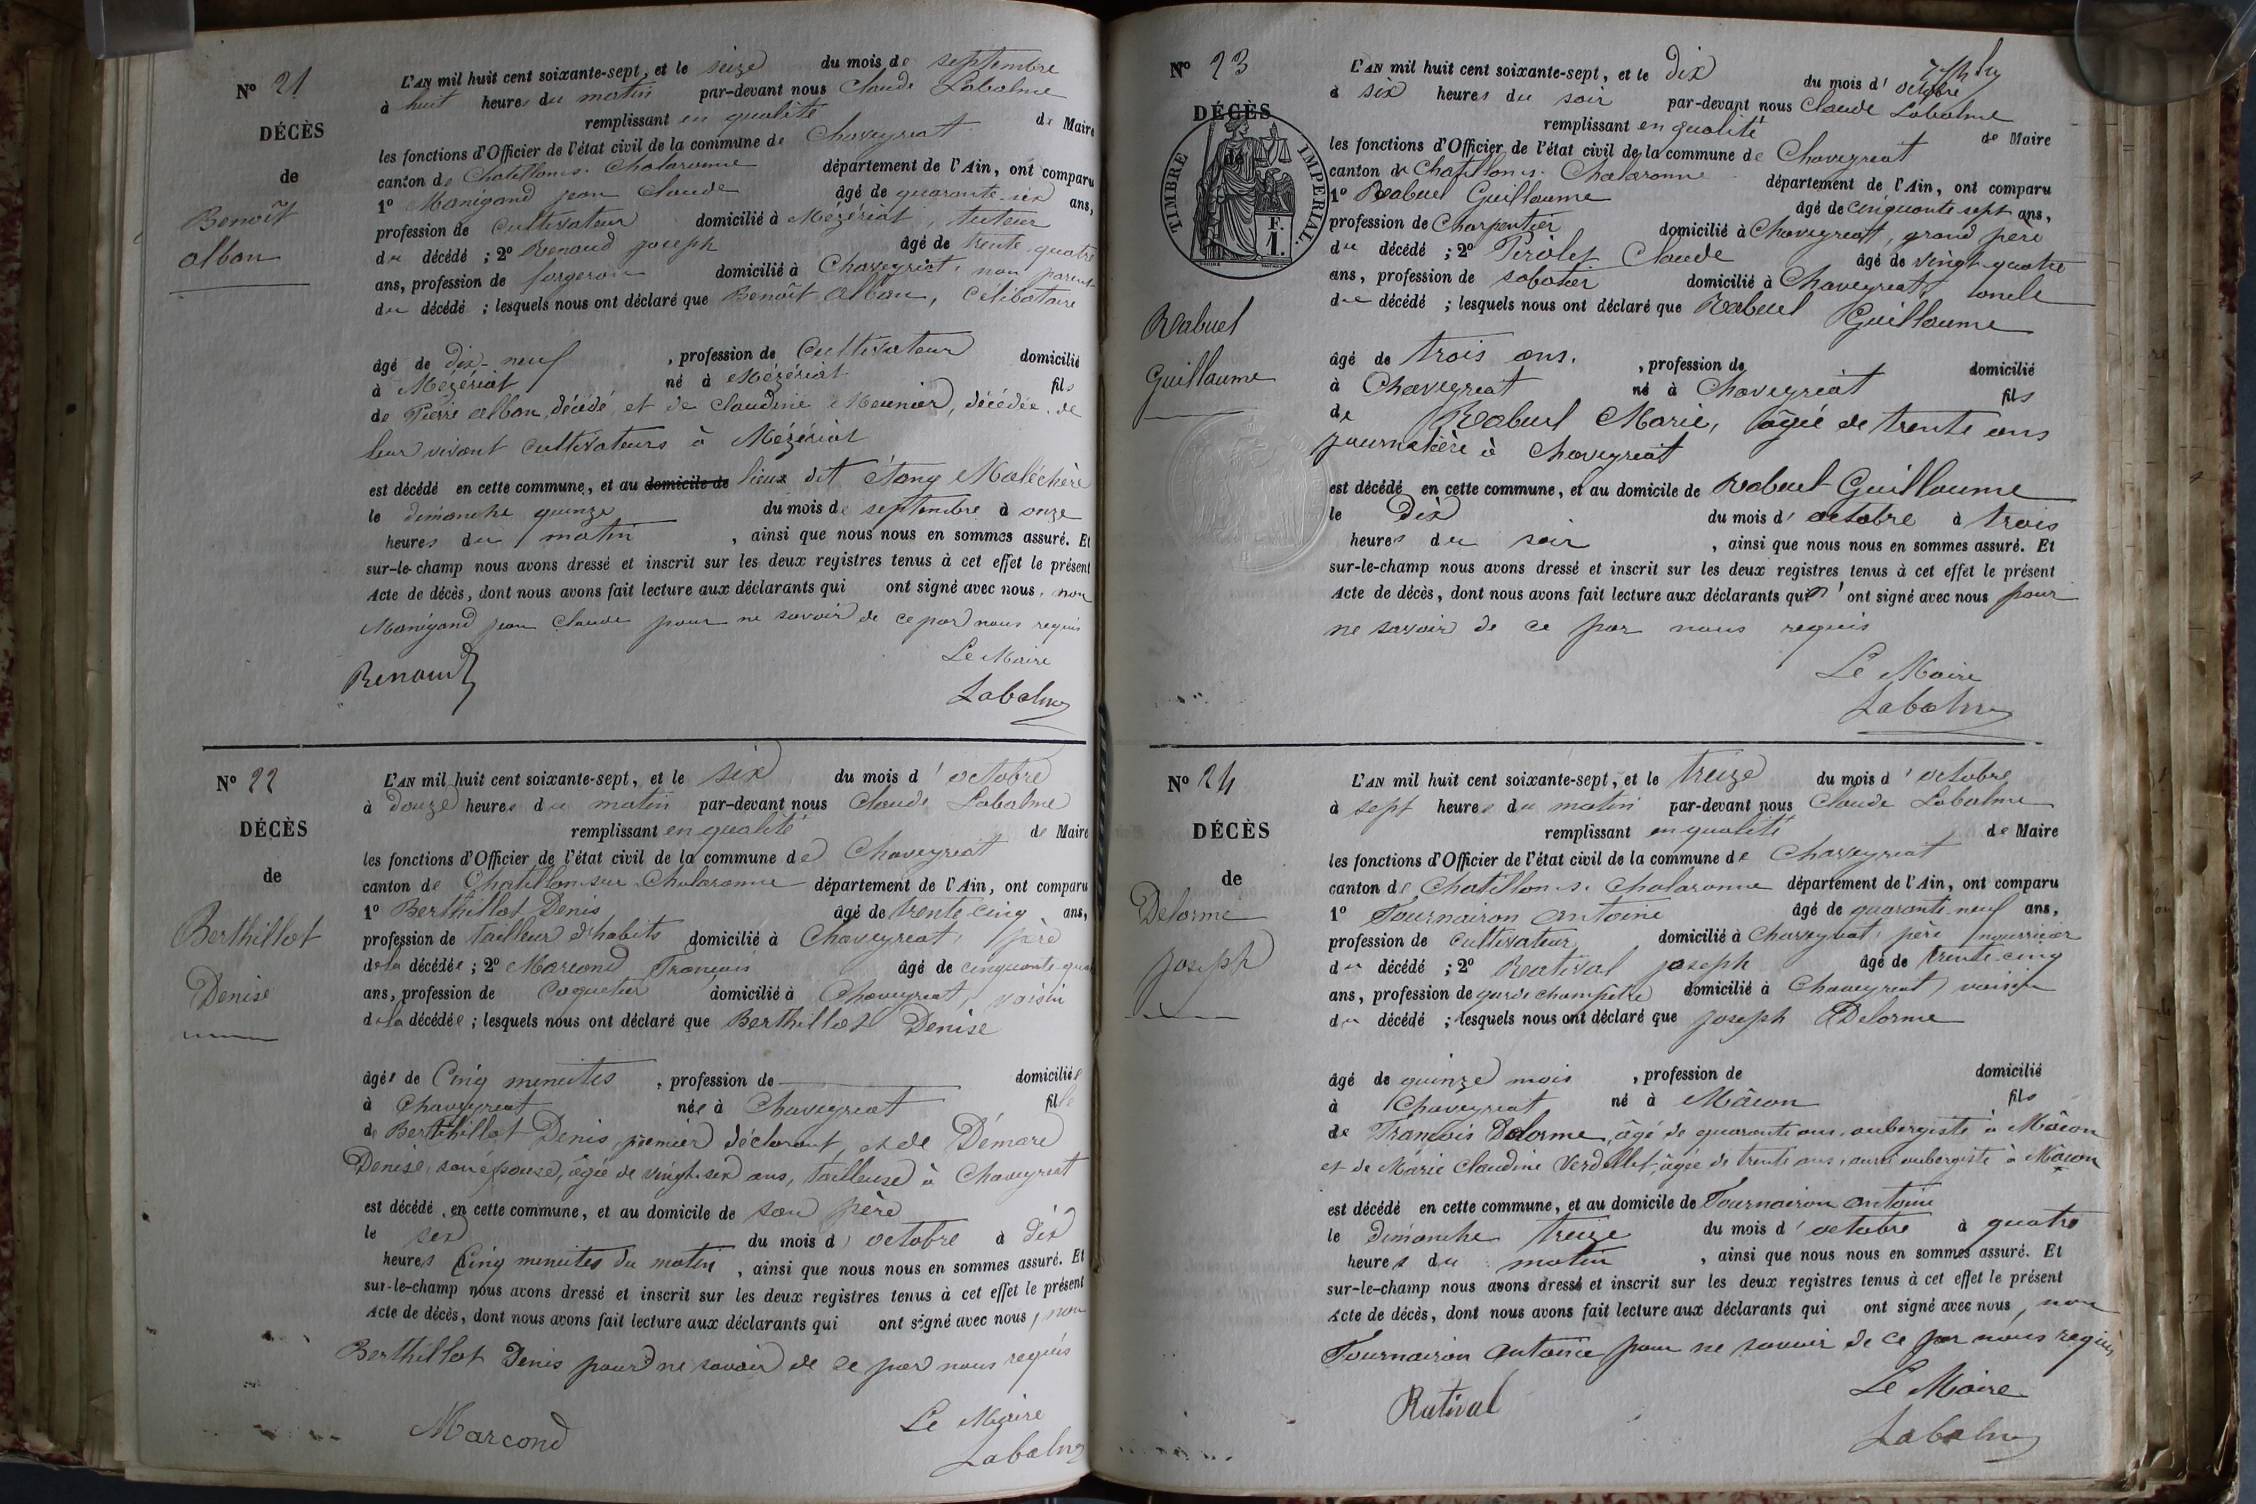 N° 21
DÉCÈS
de
Benoît
alban
L'AN mil huit cent soixante-sept, et le seize du mois de septembre
à huit heures du matin par-devant nous Claude Labalme
remplissant en qualité de Maire
les fonctions d'Officier de l'état civil de la commune de Chaveyriat
canton de Chatillon s. Chalaronne département de l'Ain, ont comparu
1° Manigand jean Claude âgé de quarante-six ans,
profession de cultivateur domicilié à Mézériat, tuteur
du décédé ; 2° Renaud joseph âgé de trente-quatre
ans, profession de forgeron domicilié à Chaveyriat, non parent
du décédé ; lesquels nous ont déclaré que Benoît alban, célibataire
âgé de dix-neuf , profession de Cultivateur domicilié
à Mézériat né à Mézériat fils
de Pierre alban, décédé, et de Claudine Meunier, décédée, de
leur vivant cultivateurs à Mézériat
est décédé en cette commune, et au domicile de lieux dit étang Maléchère
le dimanche quinze du mois de septembre à onze
heures du matin , ainsi que nous nous en sommes assuré. Et
sur-le-champ nous avons dressé et inscrit sur les deux registres tenus à cet effet le présent
Acte de décès, dont nous avons fait lecture aux déclarants qui ont signé avec nous, non
Manigand jean Claude pour ne savoir de ce par nous requis
Le Maire
Renaud
Labalme
N° 22
DÉCÈS
de
Berthillot
Denise
L'AN mil huit cent soixante-sept, et le six du mois d'octobre
à douze heures du matin par-devant nous Claude Labalme
remplissant en qualité de Maire
les fonctions d'Officier de l'état civil de la commune de Chaveyriat
canton de Chatillon sur Chalaronne département de l'Ain, ont comparu
1° Berthillot Denis âgé de trente cinq ans,
profession de tailleur d'habits domicilié à Chaveyriat, père
de la décédée ; 2° Marcond François âgé de cinquante-qua
ans, profession de Coquetier domicilié à Chaveyriat, voisin
de la décédée ; lesquels nous ont déclaré que Berthillot Denise
âgée de Cinq minutes , profession de domiciliée
à Chaveyriat née à Chaveyriat fille
de Berthillot Denis, premier déclarant, et de Démare
Denise, son épouse, âgée de vingt-six ans, tailleuse à Chaveyriat
est décédé en cette commune, et au domicile de son père
le six du mois d'octobre à dix
heures Cinq minutes du matin , ainsi que nous nous en sommes assuré. Et
sur-le-champ nous avons dressé et inscrit sur les deux registres tenus à cet effet le présent
Acte de décès, dont nous avons fait lecture aux déclarants qui ont signé avec nous, non
Berthillot Denis pour ne savoir de ce par nous requis
Le Maire
Marcond
Labalme
N° 23
DÉCÈS
de
TIMBRE IMPÉRIAL.
F.
1.
Rabuel
Guillaume
L'AN mil huit cent soixante-sept, et le dix du mois d'octobre
à six heures du soir par-devant nous Claude Labalme
remplissant en qualité de Maire
les fonctions d'Officier de l'état civil de la commune de Chaveyriat
canton de Chatillon s. Chalaronne département de l'Ain, ont comparu
1° Rabuel Guillaume âgé de cinquante sept ans,
profession de Charpentier domicilié à Chaveyriat, grand père
du décédé ; 2° Pirolet Claude âgé de vingt-quatre
ans, profession de sabotier domicilié à Chaveyriat, oncle
du décédé ; lesquels nous ont déclaré que Rabuel Guillaume
âgé de trois ans. , profession de domicilié
à Chaveyriat né à Chaveyriat fils
de Rabuel Marie, âgée de trente ans
journalière à Chaveyriat
est décédé en cette commune, et au domicile de Rabuel Guillaume
le Dix du mois d'octobre à trois
heures du soir , ainsi que nous nous en sommes assuré. Et
sur-le-champ nous avons dressé et inscrit sur les deux registres tenus à cet effet le présent
Acte de décès, dont nous avons fait lecture aux déclarants qui n'ont signé avec nous pour
ne savoir de ce par nous requis
Le Maire
Labalme
N° 24
DÉCÈS
de
Delorme
joseph
L'AN mil huit cent soixante-sept, et le treize du mois d'octobre
à sept heures du matin par-devant nous Claude Labalme
remplissant en qualité de Maire
les fonctions d'Officier de l'état civil de la commune de Chaveyriat
canton de Chatillon s. Chalaronne département de l'Ain, ont comparu
1° Tournairon antoine âgé de quarante-neuf ans,
profession de Cultivateur domicilié à Chaveyriat, père nourricier
du décédé ; 2° Ratival joseph âgé de trente-cinq
ans, profession de garde champêtre domicilié à Chaveyriat, voisin
du décédé ; lesquels nous ont déclaré que joseph Delorme
âgé de quinze mois , profession de domicilié
à Chaveyriat né à Mâcon fils
de François Delorme, âgé de quarante ans, aubergiste à Mâcon
et de Marie Claudine Verdellet, âgée de trente ans, aussi aubergiste à Mâcon
est décédé en cette commune, et au domicile de Tournairon antoine
le dimanche treize du mois d'octobre à quatre
heures du matin , ainsi que nous nous en sommes assuré. Et
sur-le-champ nous avons dressé et inscrit sur les deux registres tenus à cet effet le présent
Acte de décès, dont nous avons fait lecture aux déclarants qui ont signé avec nous, non
Tournairon antoine pour ne savoir de ce par nous requis
Le Maire
Ratival
Labalme